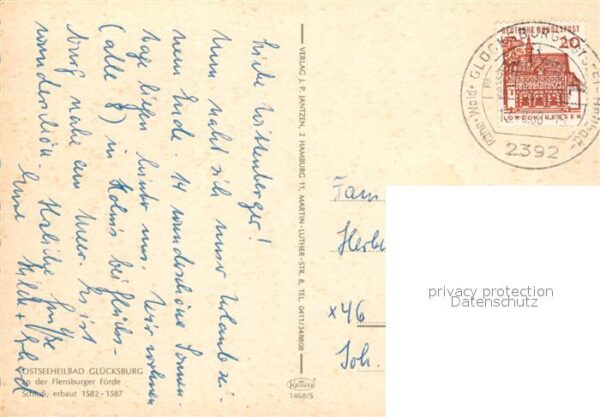 Liebe Wöllenberger!
Nun naht sich unser Urlaub sei-
nem Ende. 14 wunderschöne Sonnen-
tage liegen hinter uns. Wir wohnen
(alle 8) in Holnis bei Glücks-
burg nahe am Meer. Es ist
wunderschön. Herzliche Grüße
Eure
OSTSEEHEILBAD GLÜCKSBURG
an der Flensburger Förde
Schloß, erbaut 1582 - 1587
VERLAG J. P. JANTZEN, 2 HAMBURG 11, MARTIN-LUTHER-STR. 8, TEL. 0411/346808
KRÜGER
1468/5
DEUTSCHE BUNDESPOST
20
LORSCH/HESSEN
GLÜCKSBURG
2392
Fam
Herbe
46
Joh.
privacy protection
Datenschutz